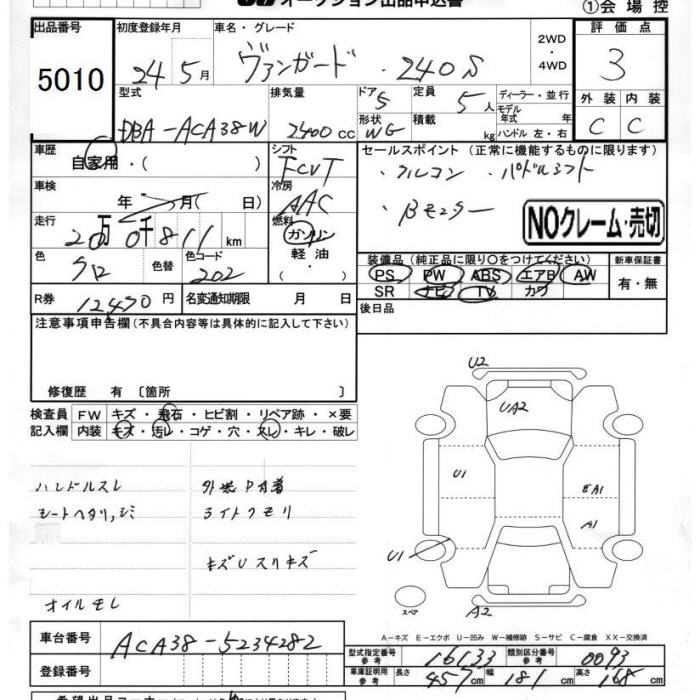 オークション出品申込書
①会場控
出品番号
5010
初度登録年月
24 5月
車名・グレード
ヴァンガード・240S
2WD
・
4WD
評価点
3
外装 内装
C C
型式
DBA-ACA38W
排気量
2400 cc
ドア 5
形状 WG
定員 5人
積載 kg
ディーラー・並行
モデル
年式 年
ハンドル 左・右
車歴
自家用・( )
シフト
FCVT
車検
年 月( 日)
冷房
AAC
走行
20万0千811km
燃料
ガソリン
・
軽油
・
( )
色
クロ
色替
色コード
202
R券
12470円
名変通知期限 月 日
セールスポイント (正常に機能するものに限ります)
・クルコン ・パドルシフト
・Bモニター
NOクレーム・売切
装備品(純正品に限り○をつけてください)
PS PW ABS エアB AW
SR ナビ TV カワ
新車保証書
有・無
後日品
注意事項申告欄(不具合内容等は具体的に記入して下さい)
修復歴 有 [箇所 ]
検査員 FW キズ・飛石・ヒビ割・リペア跡・×要
記入欄 内装 キズ・汚レ・コゲ・穴・スレ・キレ・破レ
ハンドルスレ
シートヘタリ、シミ
オイルモレ
ライトクモリ
キズUスリキズ
U2
UA2
U1
EA1
A1
U1
A2
スペア
A-キズ E-エクボ U-凹み W-補修跡 S-サビ C-腐食 XX-交換済
車台番号
ACA38-5234282
登録番号
型式指定番号
参考
16133
類別区分番号
参考
0093
車庫証明用
参考
長さ 457cm 幅 181cm 高さ 168cm